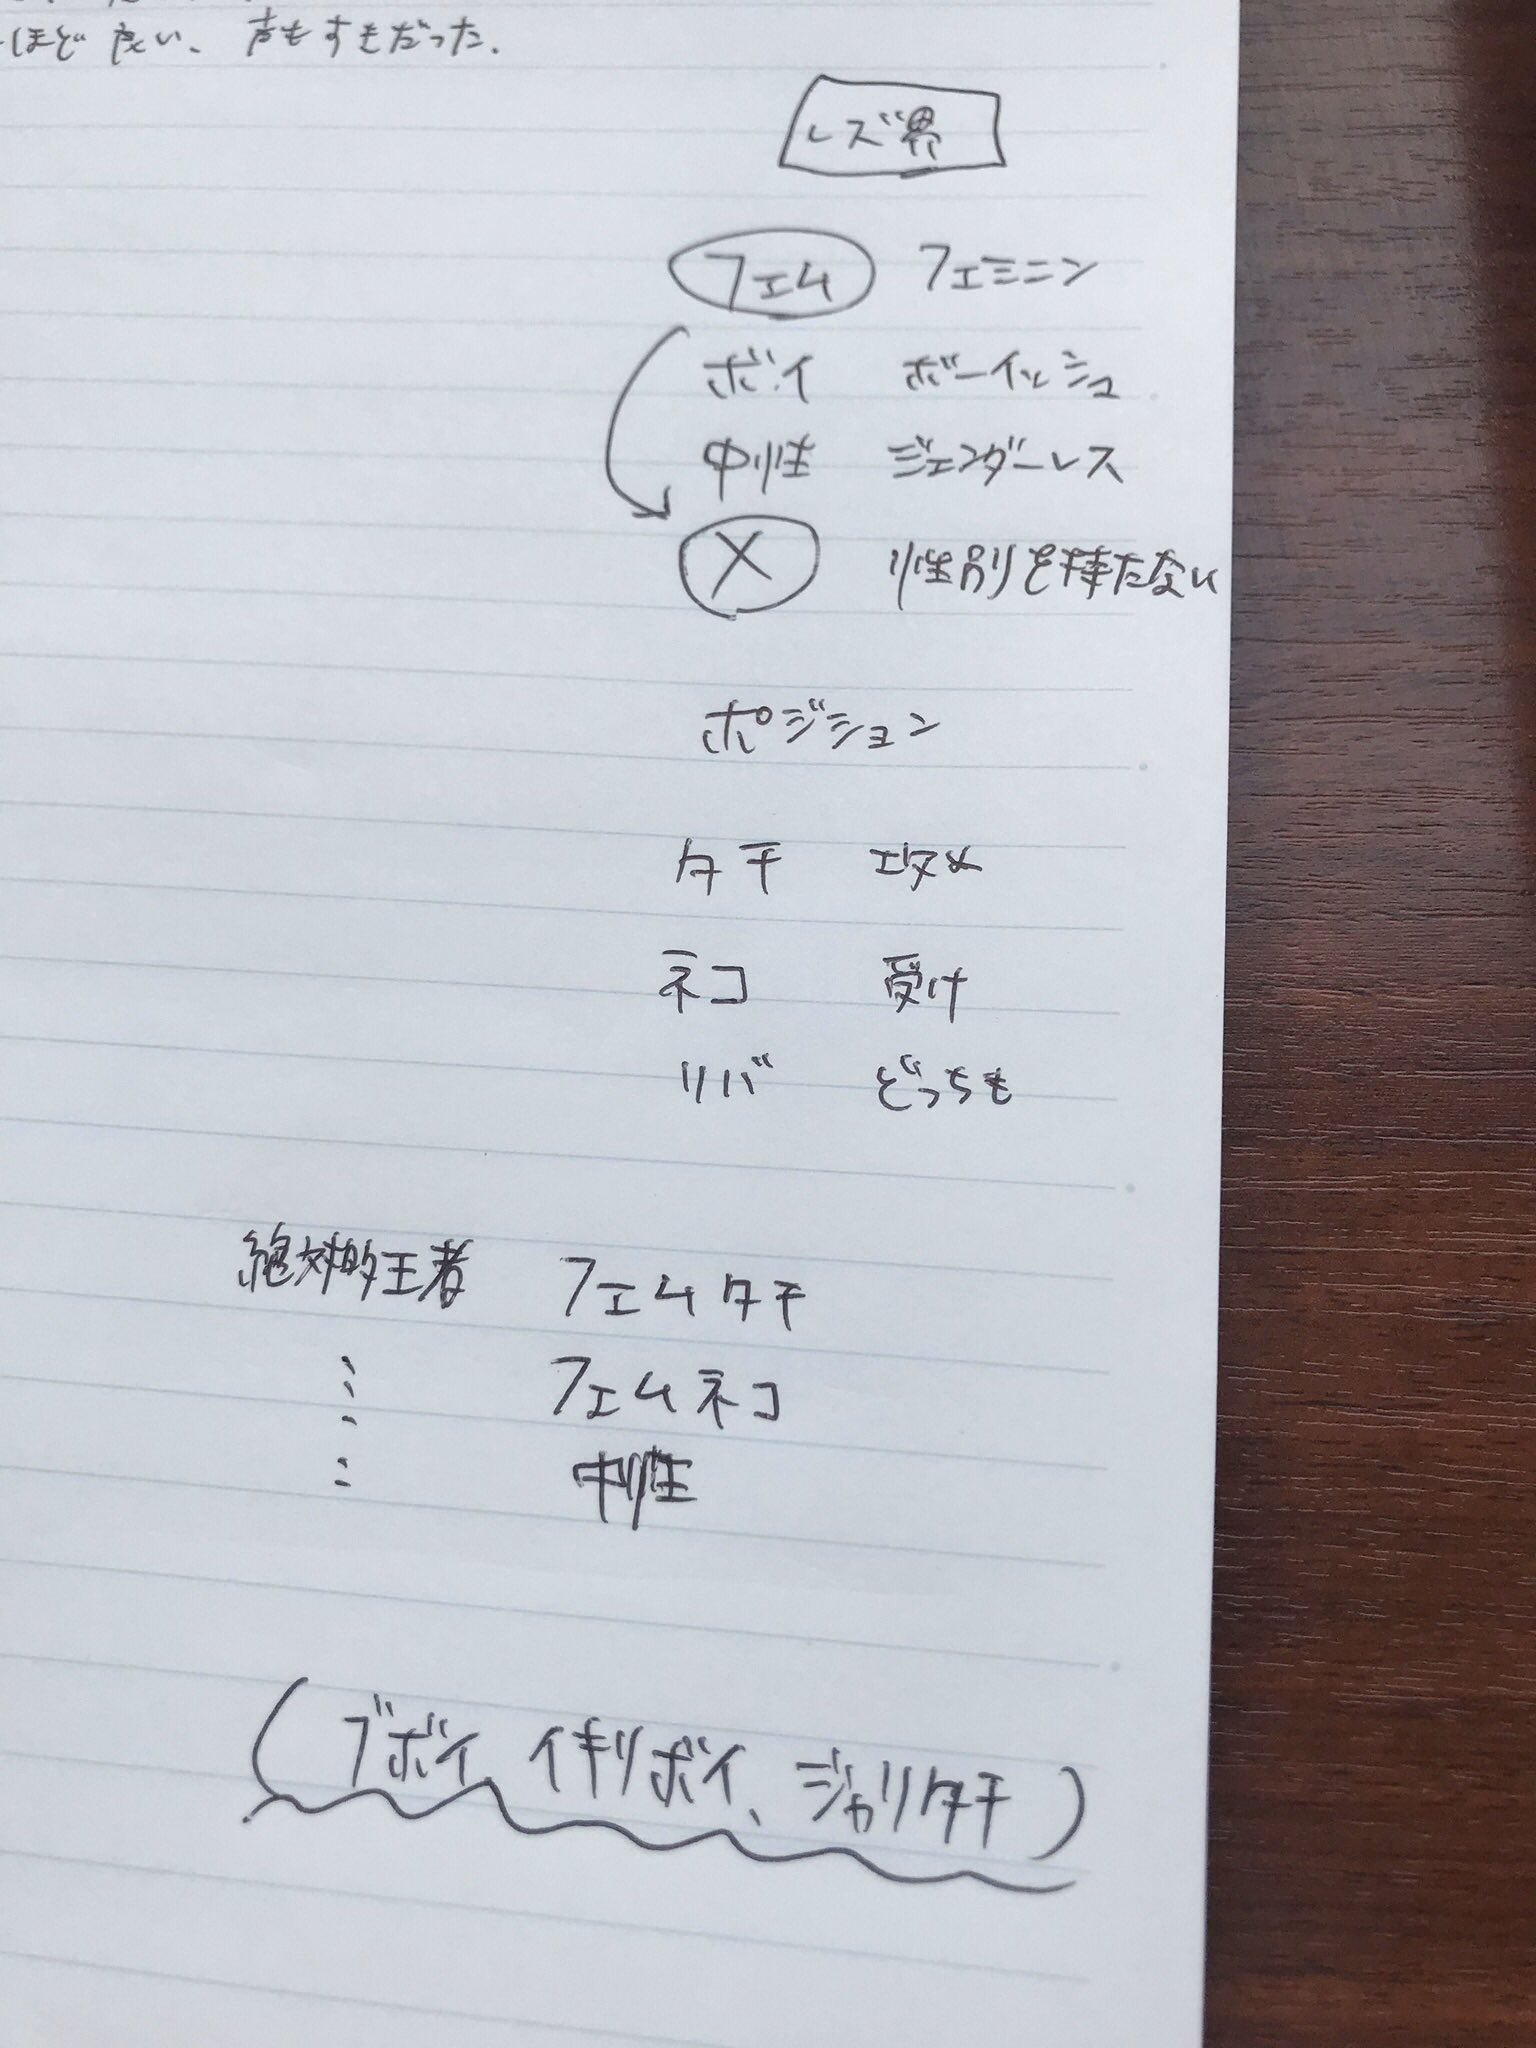 ほど良い、声もすきだった。
レズ界
フェム フェミニン
ボイ ボーイッシュ
中性 ジェンダーレス
X 性別を持たない
ポジション
タチ 攻め
ネコ 受け
リバ どっちも
絶対的王者 フェムタチ
フェムネコ
中性
(ブボイ、イキリボイ、ジャリタチ)